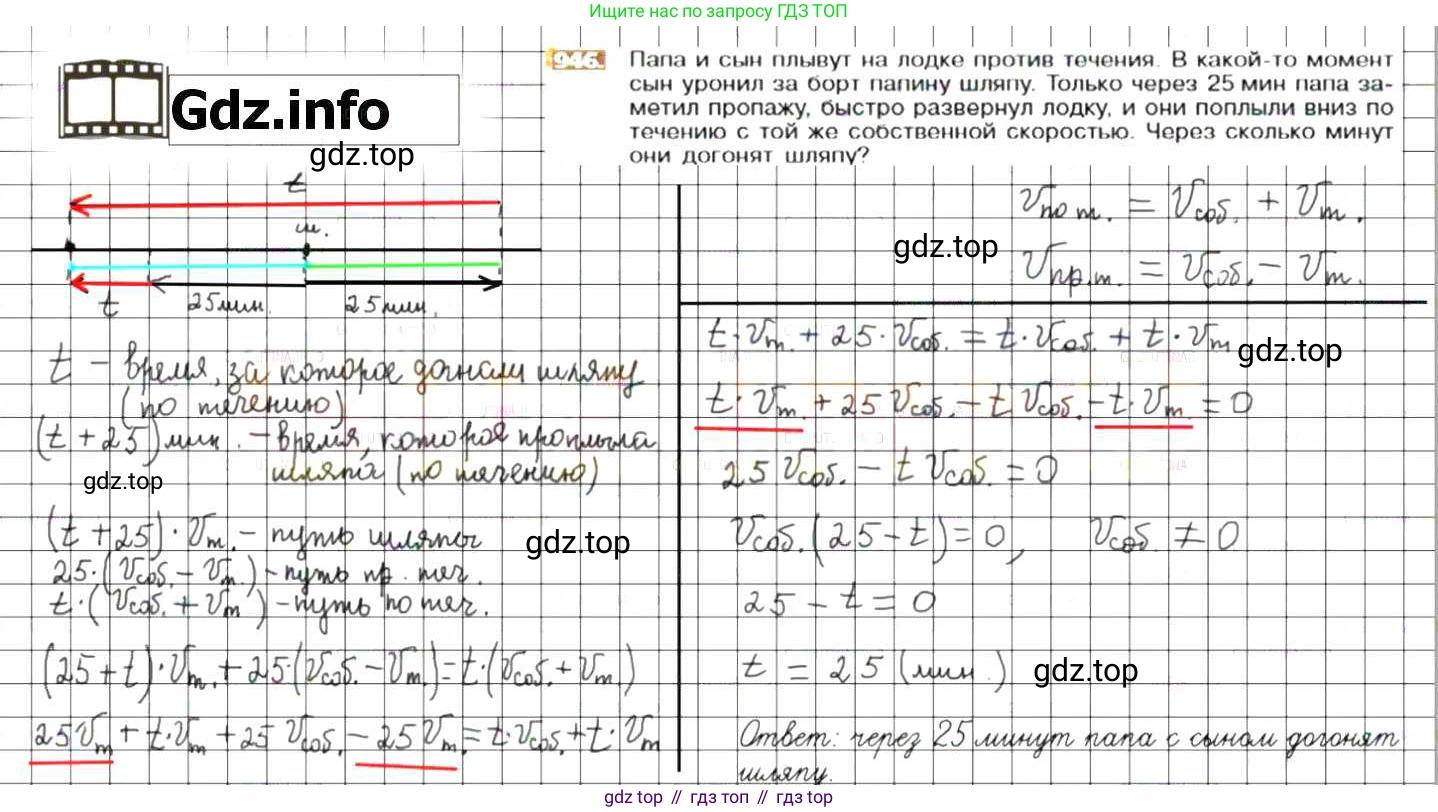 Ищите нас по запросу ГДЗ ТОП
Gdz.info
gdz.top
946. Папа и сын плывут на лодке против течения. В какой-то момент
сын уронил за борт папину шляпу. Только через 25 мин папа за-
метил пропажу, быстро развернул лодку, и они поплыли вниз по
течению с той же собственной скоростью. Через сколько минут
они догонят шляпу?
t
ш.
t 25 мин. 25 мин.
t – время, за которое догнали шляпу
(по течению)
(t + 25) мин. – время, которое проплыла
шляпа (по течению)
gdz.top
(t + 25) · Vт. – путь шляпы
gdz.top
25·(Vсоб. – Vт.) – путь пр. теч.
t·(Vсоб. + Vт) – путь по теч.
(25 + t)·Vт. + 25·(Vсоб. – Vт.) = t·(Vсоб. + Vт.)
25Vт + t·Vт + 25 Vсоб. – 25Vт. = t·Vсоб. + t·Vт
Vпо т. = Vсоб. + Vт.
gdz.top
Vпр.т. = Vсоб. – Vт.
t·Vт. + 25·Vсоб. = t·Vсоб. + t·Vт
gdz.top
t·Vт. + 25 Vсоб. – t Vсоб. – t·Vт. = 0
25 Vсоб. – t Vсоб. = 0
Vсоб.(25 – t) = 0, Vсоб. ≠ 0
25 – t = 0
t = 25 (мин.)
gdz.top
Ответ: через 25 минут папа с сыном догонят
шляпу.
gdz top // гдз топ // gdz top